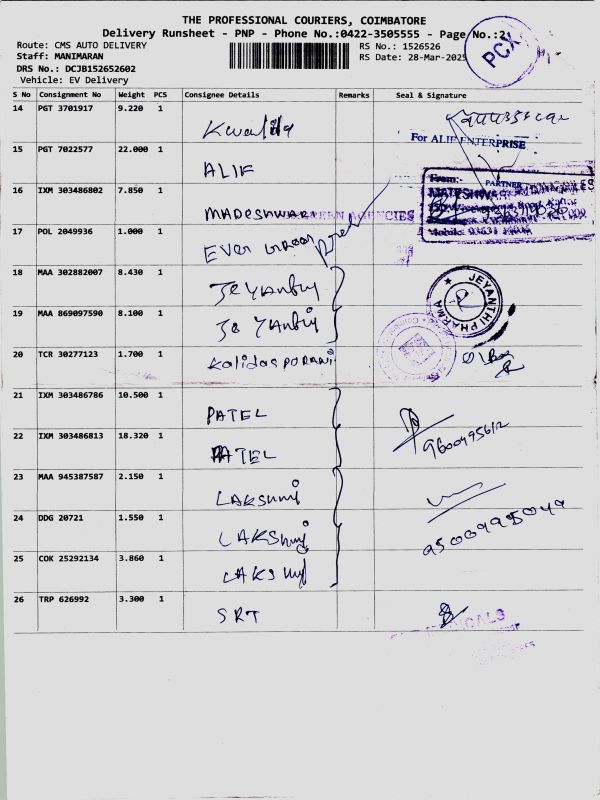 THE PROFESSIONAL COURIERS, COIMBATORE
Delivery Runsheet - PNP - Phone No.:0422-3505555 - Page No.:2
Route: CMS AUTO DELIVERY
RS No.: 1526526
Staff: MANIMARAN
RS Date: 28-Mar-2025
DRS No.: DCJB152652602
Vehicle: EV Delivery
PCX
S No Consignment No Weight PCS Consignee Details Remarks Seal & Signature
14 PGT 3701917 9.220 1
Kwality
For ALIF ENTERPRISE
15 PGT 7022577 22.000 1
ALIF
PARTNER
From:-
16 IXM 303486802 7.850 1
MADESHWARI
AGENCIES
17 POL 2049936 1.000 1
EVER GREEN
18 MAA 302882007 8.430 1
JEYANTHI
JEYANTHI PHARMA
19 MAA 869097590 8.100 1
JEYANTHI
20 TCR 30277123 1.700 1
Kalidas PORANI
21 IXM 303486786 10.500 1
PATEL
9600495612
22 IXM 303486813 18.320 1
PATEL
23 MAA 945387587 2.150 1
LAKSHMI
24 DDG 20721 1.550 1
LAKSHMI
9500995049
25 COK 25292134 3.860 1
LAKSHMI
26 TRP 626992 3.300 1
SRT